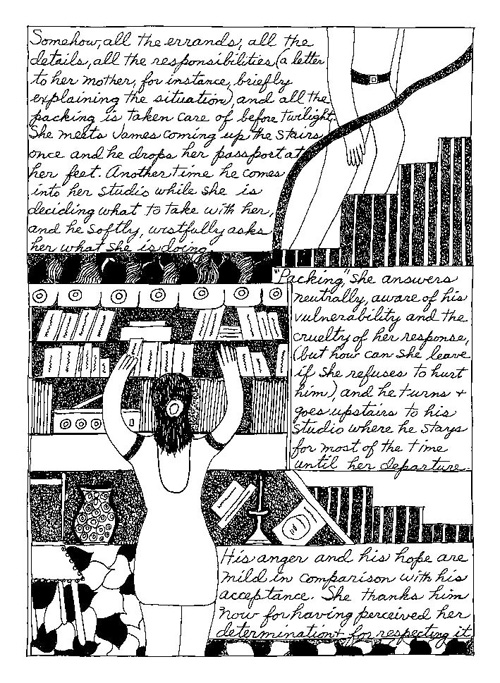 Somehow, all the errands, all the
details, all the responsibilities (a letter
to her mother, for instance, briefly
explaining the situation), and all the
packing is taken care of before twilight.
She meets James coming up the stairs
once and he drops her passport at
her feet. Another time he comes
into her studio while she is
deciding what to take with her,
and he softly, wistfully asks
her what she is doing.
"Packing," she answers
neutrally, aware of his
vulnerability and the
cruelty of her response,
(but how can she leave
if she refuses to hurt
him), and he turns +
goes upstairs to his
studio where he stays
for most of the time
until her departure.
His anger and his hope are
mild in comparison with his
acceptance. She thanks him
now for having perceived her
determination + for respecting it.